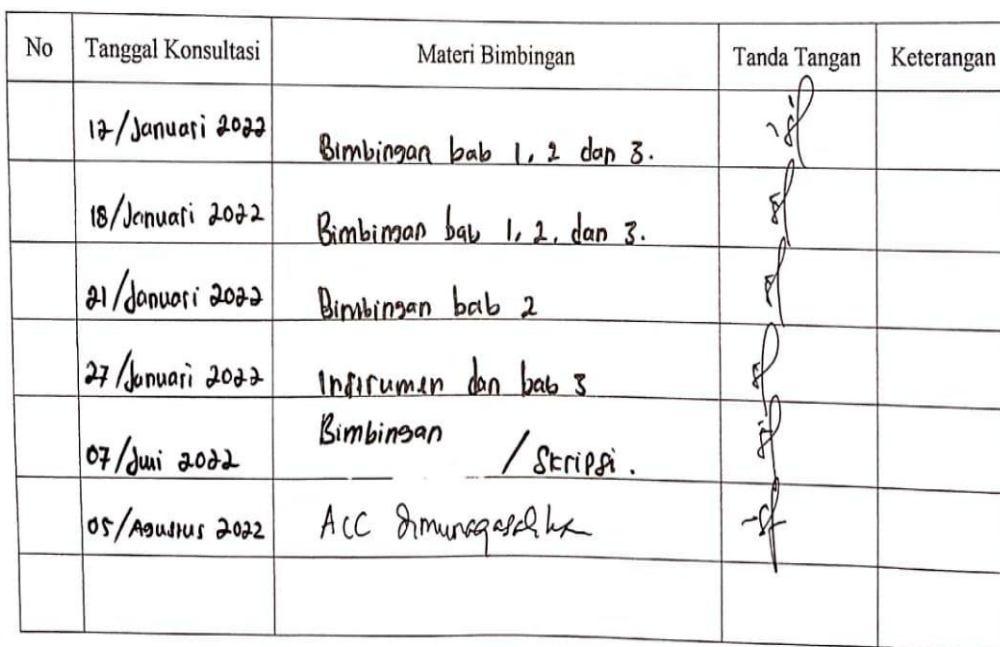 No Tanggal Konsultasi Materi Bimbingan Tanda Tangan Keterangan
12/Januari 2022 Bimbingan bab 1, 2 dan 3.
18/Januari 2022 Bimbingan bab 1, 2, dan 3.
21/Januari 2022 Bimbingan bab 2
27/Januari 2022 Instrumen dan bab 3
07/Juni 2022 Bimbingan / Skripsi.
05/Agustus 2022 ACC dimunaqasahkan